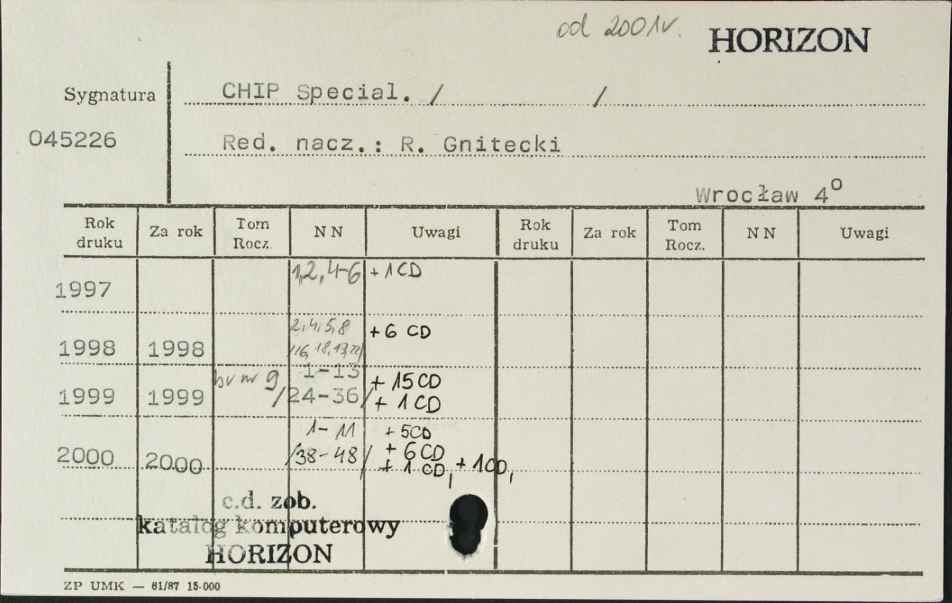 od 2001r. HORIZON
Sygnatura CHIP Special. / /
045226 Red. nacz.: R. Gnitecki
Wrocław 4°
Rok druku Za rok Tom Rocz. NN Uwagi Rok druku Za rok Tom Rocz. NN Uwagi
1997 1,2,4-6 + 1 CD
2,4,5,8 + 6 CD
1998 1998 /16,18,19,
1-13 + 15 CD
1999 1999 nr 9 /24-36/ + 1 CD
1-11 + 5CD
2000 2000 /38-48/ + 6 CD
+ 1 CD, + 1CD,
c.d. zob.
katalog komputerowy
HORIZON
ZP UMK — 61/87 15.000